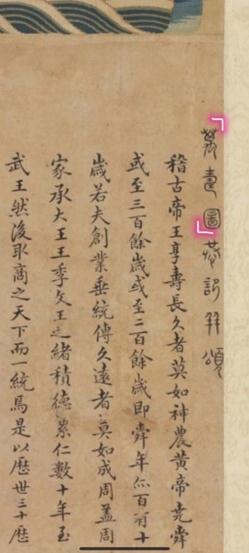 萬壽圖恭記并頌
稽古帝王享壽長久者莫如神農黃帝堯舜
或至三百餘歲或至二百餘歲即舜年亦百有十
歲若夫創業垂統傳久遠者莫如成周蓋周
家承大王王季文王之緒積德累仁數十年至
武王然後取商之天下而一統焉是以歷世三十歷